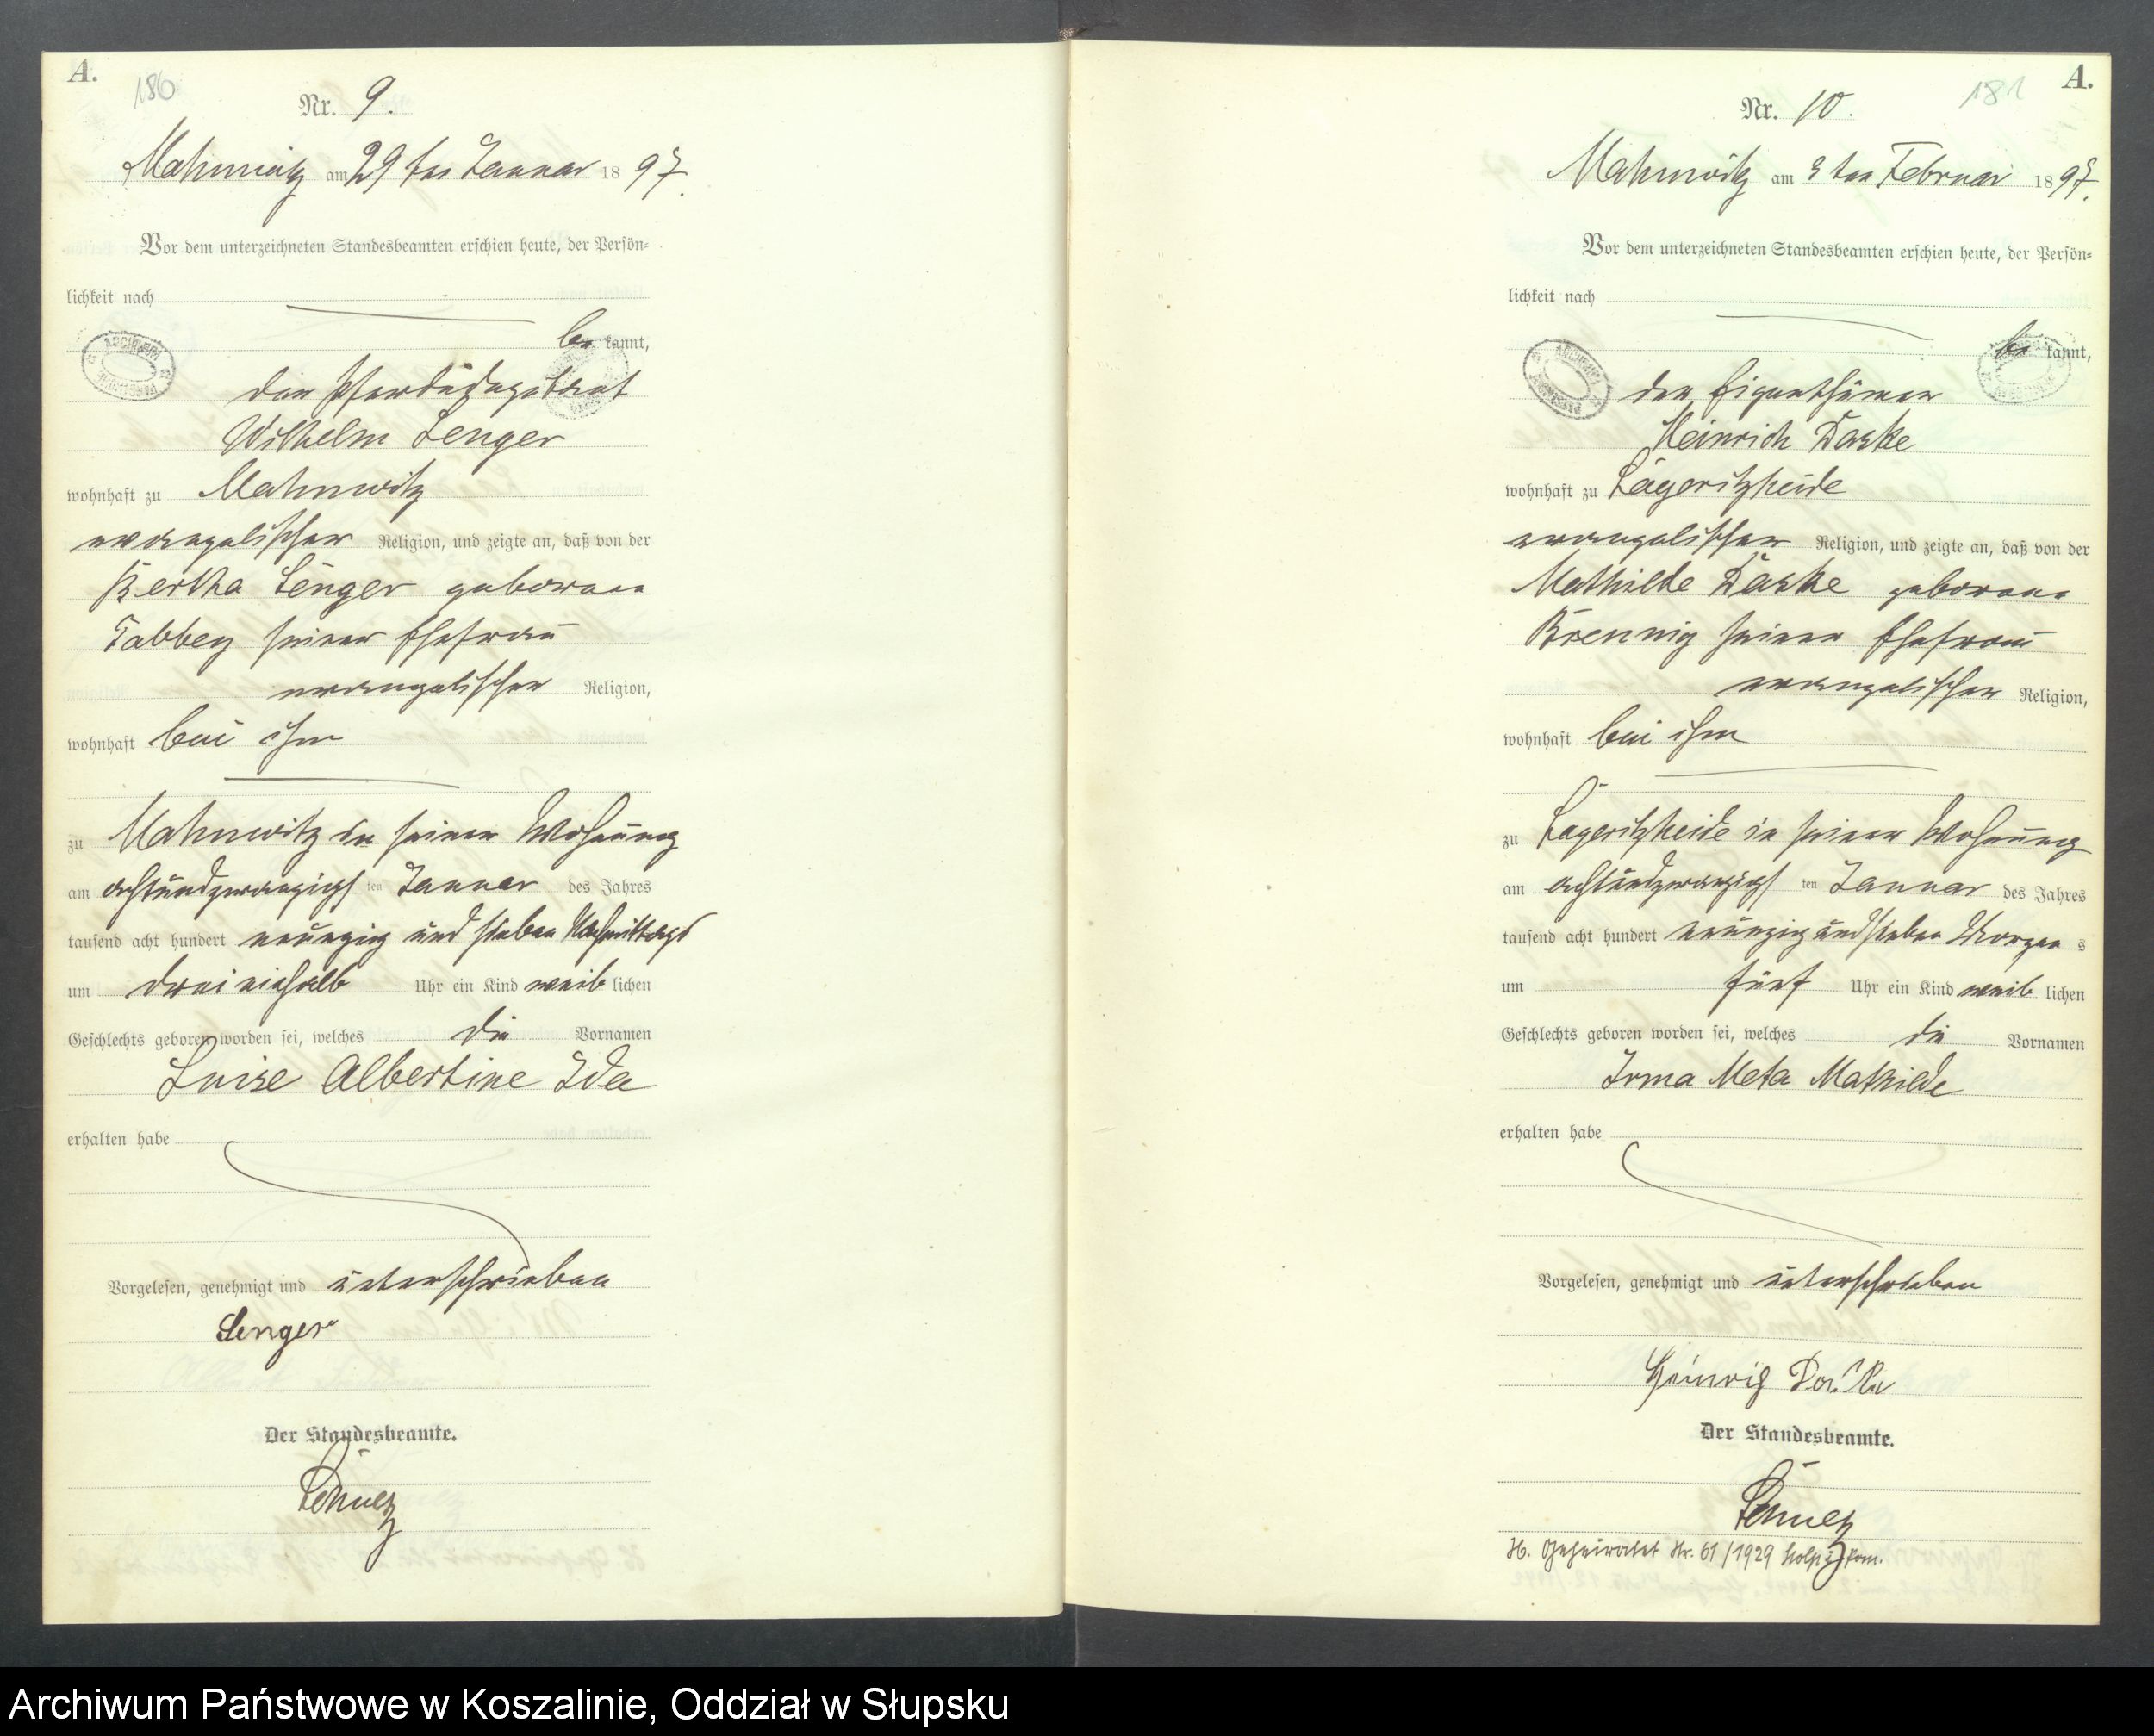 A.
180
Nr. 9.
Mahnwitz am 29 ten Januar 1897.
Vor dem unterzeichneten Standesbeamten erschien heute, der Persön-
lichkeit nach
be kannt,
der
Wilhelm Senger
wohnhaft zu Mahnwitz
evangelischer Religion, und zeigte an, daß von der
Bertha Senger geborene
Tabbey seiner Ehefrau
evangelischer Religion,
wohnhaft bei ihm
zu Mahnwitz in seiner Wohnung
am achtundzwanzigs ten Januar des Jahres
tausend acht hundert neunzig und sieben Nachmittags
um drei einhalb Uhr ein Kind weib lichen
Geschlechts geboren worden sei, welches die Vornamen
Luise Albertine Ida
erhalten habe
Vorgelesen, genehmigt und unterschrieben
Senger
Der Standesbeamte.
Schulz
A.
181
Nr. 10.
Mahnwitz am 3 ten Februar 1897.
Vor dem unterzeichneten Standesbeamten erschien heute, der Persön-
lichkeit nach
be kannt,
der Eigenthümer
Heinrich Daske
wohnhaft zu Zägeritzheide
evangelischer Religion, und zeigte an, daß von der
Mathilde Daske geborene
Brennig seiner Ehefrau
evangelischer Religion,
wohnhaft bei ihm
zu Zägeritzheide in seiner Wohnung
am achtundzwanzigs ten Januar des Jahres
tausend acht hundert neunzig und sieben Morgen s
um fünf Uhr ein Kind weib lichen
Geschlechts geboren worden sei, welches die Vornamen
Irma Meta Mathilde
erhalten habe
Vorgelesen, genehmigt und unterschrieben
Heinrich Daske
Der Standesbeamte.
Schulz
H. Geheiratet Nr. 61/1929 Stolp i. Pom.
Archiwum Państwowe w Koszalinie, Oddział w Słupsku